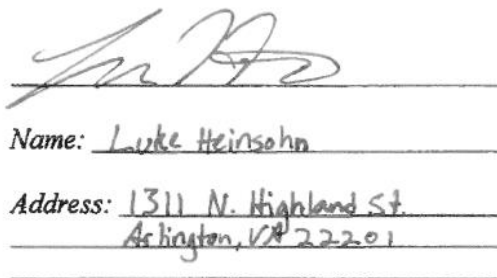 Name: Luke Heinsohn
Address: 1311 N. Highland St.
Arlington, VA 22201